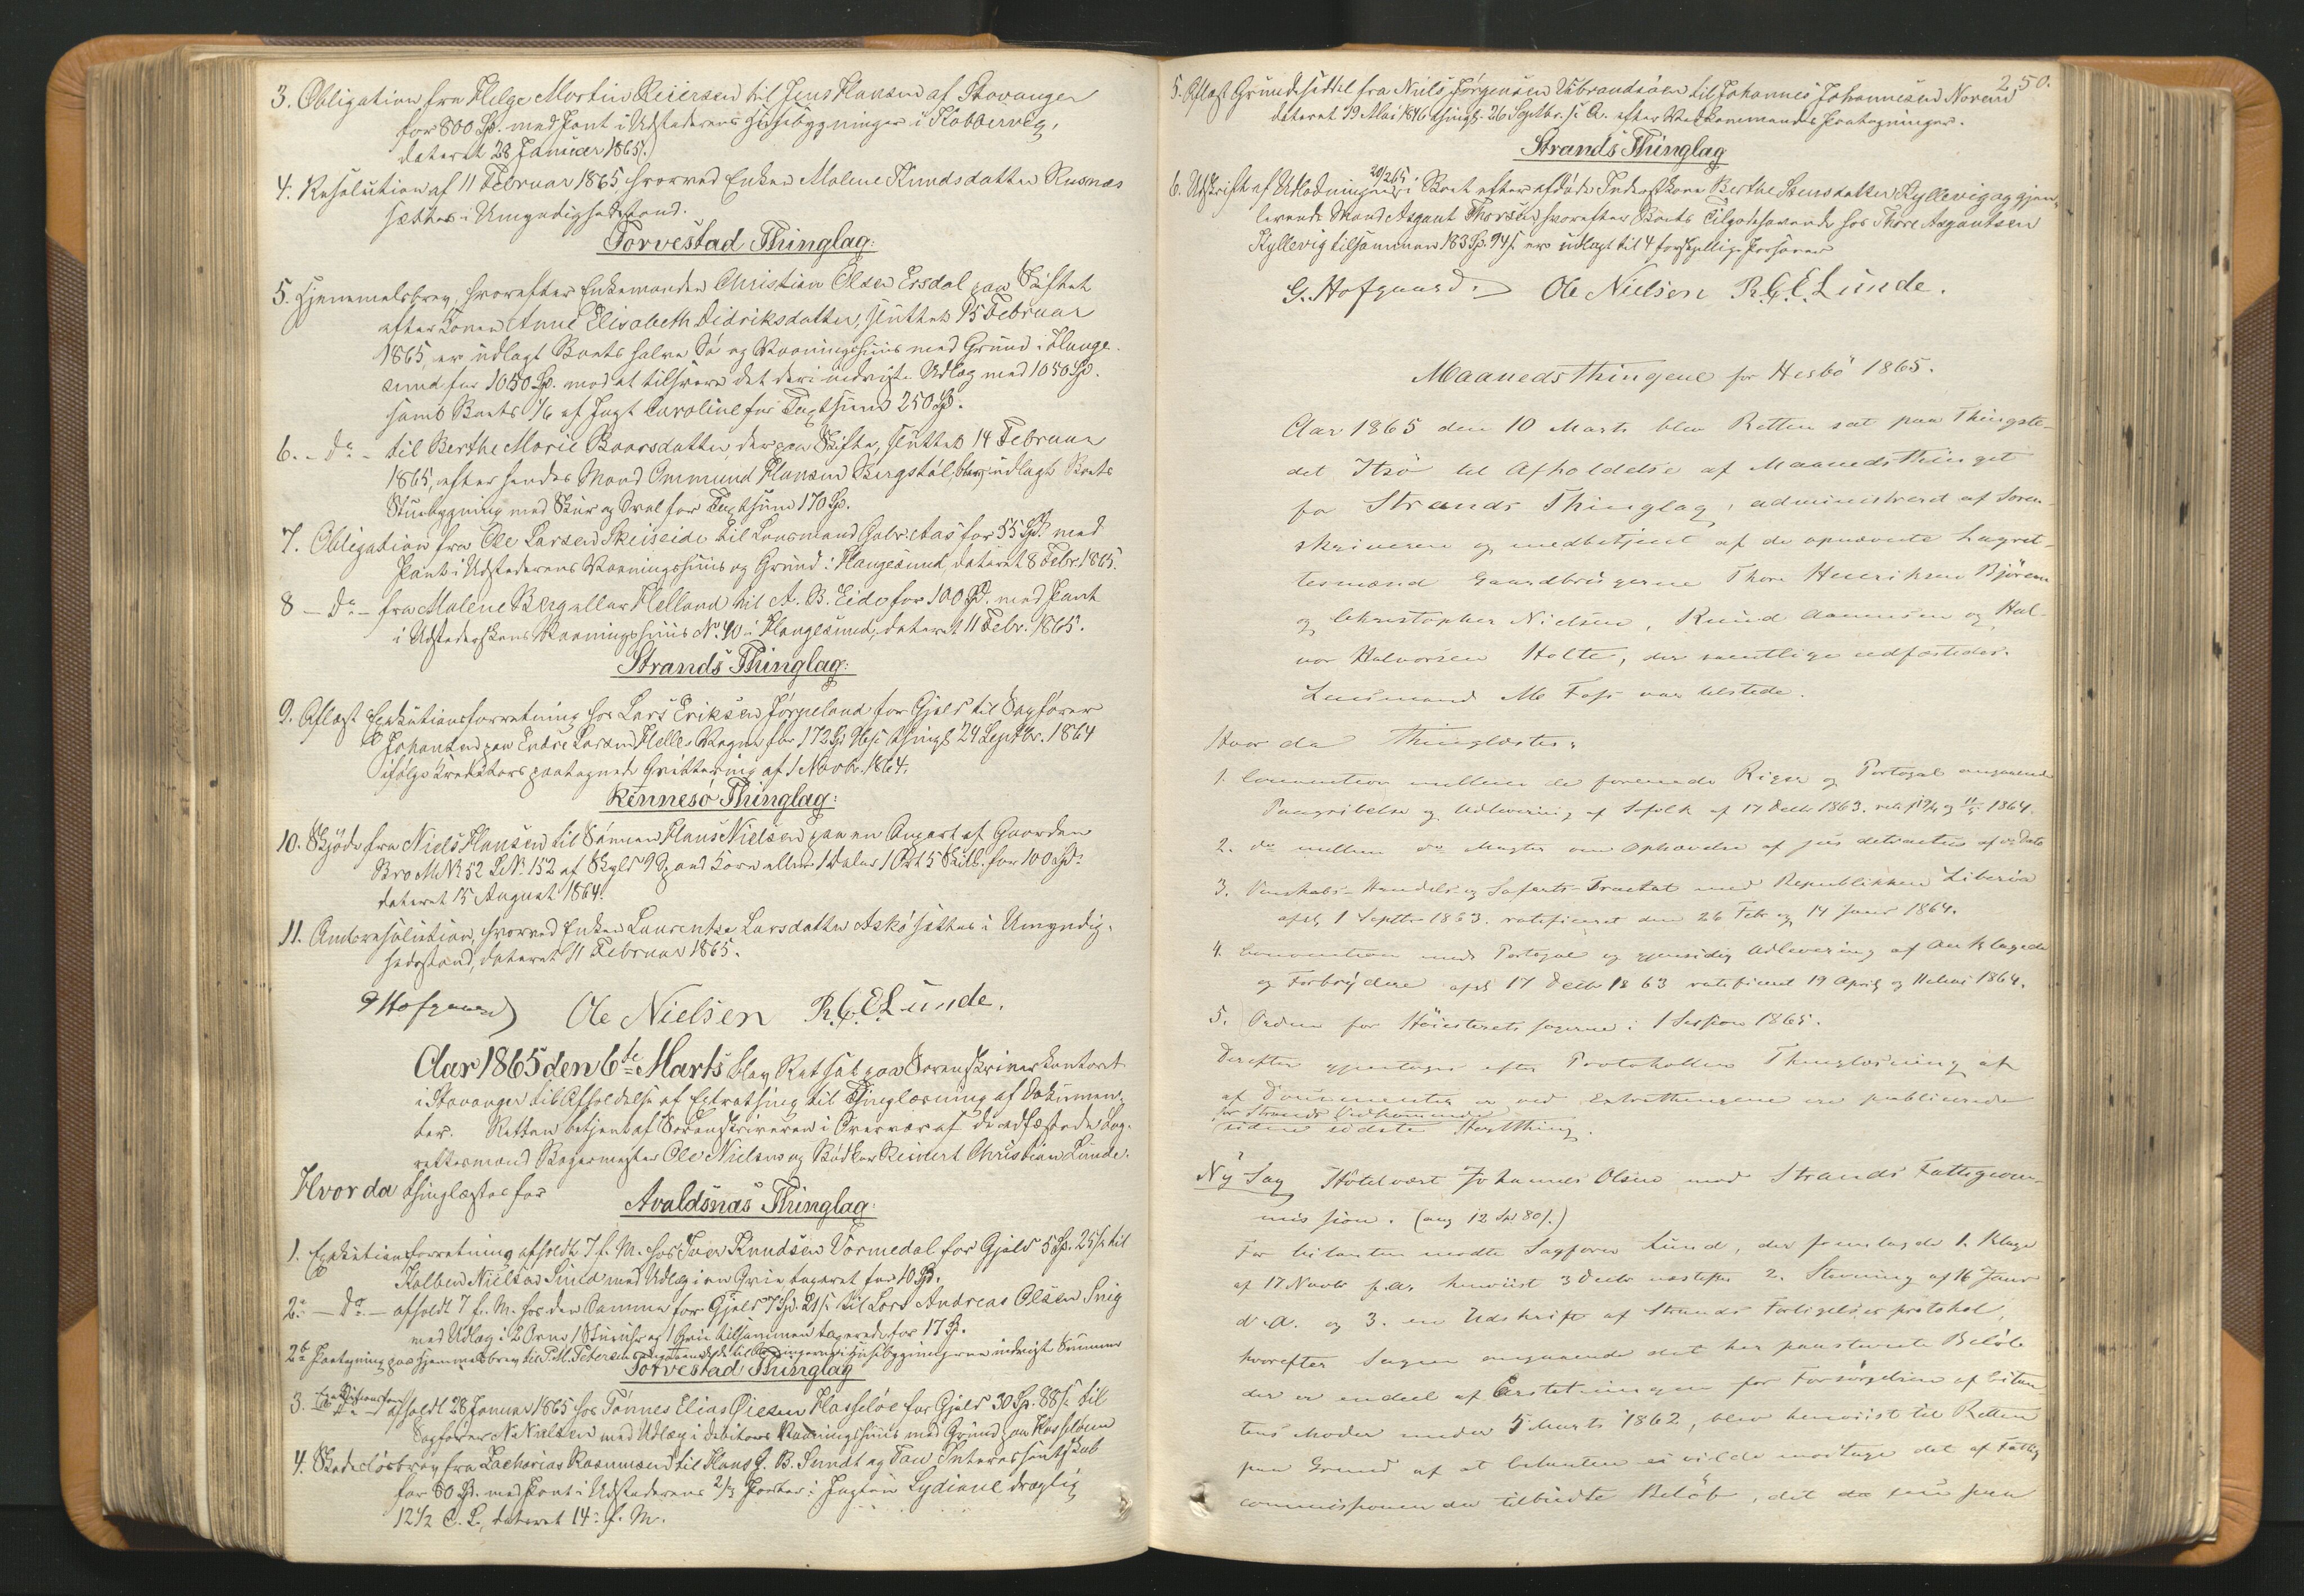 3. Obligation fra Helge Martin Reiersen til Jens Hansen af Stavanger
for 800 Sp. med Pant i Udstederens Huusebygninger i Kobbervig,
dateret 28 Januar 1865.
4. Resolution af 11 Februar 1865 hvorved Enken Malene Knudsdatter Rusnæs
sættes i Umyndighedsstand.
Torvestad Thinglag:
5. Hjemmelsbrev, hvorefter Enkemanden Christian Olsen Ersdal paa Skiftet
efter Konen Anne Elisabeth Didriksdatter, sluttet 15 Februar
1865, er udlagt Boets halve Sø og Vaaningshuus med Grund i Hauge-
sund for 1050 Sp. mod at tilsvare det deri indrøgt. Udlæg med 1050 Sp.
samt Boets 1/6 af Jagt Caroline for Taxtsum 250 Sp.
6. - do - til Berthe Marie Baarsdatter, der paa Skifte, sluttet 14 Februar
1865, efter hendes Mand Ommund Hansen Bergstøl, blev udlagt Boets
Stuebygning med Skur og Sval for Taxtsum 170 Sp.
7. Obligation fra Ole Larsen Skeiseide til Lensmand Gabr. Aas for 55 Sp. med
Pant i Udstederens Vaaningshuus og Grund i Haugesund, dateret 8 Febr. 1865.
8 - do - fra Malene Berg eller Helland til A. B. Eide for 100 Sp. med Pant
i Udstederskens Vaaningshuus No. 40 i Haugesund, dateret 11 Febr. 1865.
Strands Thinglag:
9. Aflæst Executionsforretning hos Lars Eriksen Jørpeland for Gjeld til Sagfører
Johansen paa Endre Larsen Helle's Vegne for 172 Sp thingl. 24 Septbr. 1864
ifølge Creditors paategnede Qvittering af 1 Novbr. 1864.
Rennesø Thinglag:
10. Skjøde fra Niels Hansen til Sønnen Hans Nielsen paa en Anpart af Gaarden
Bro M.No 52 L.No. 152 af Skyld 9 Spand Korn eller 1 Daler 1 Ort 5 Skill. for 100 Sp.
dateret 15 August 1864.
11. Amtsresolution, hvorved Enken Laurentse Larsdatter Askø sættes i Umyndig-
hedsstand, dateret 11 Februar 1865.
G Hofgaard Ole Nielsen R.C.E. Lunde.
Aar 1865 den 6te Marts blev Ret sat paa Sorenskriverkontoret
i Stavanger til Afholdelse af Extrathing til Thinglæsning af Dokumen-
ter. Retten betjent af Sorenskriveren i Overvær af de edfæstede Lag-
rettesmænd Bagermester Ole Nielsen og Bødker Reinert Christian Lunde.
Hvor da thinglæstes for
Avaldsnæs Thinglag:
1. Executionsforretning afholdt 7 f. M. hos Iver Knudsen Vormedal for Gjeld 5 Sp. 25 s. til
Kolben Nielsen Sund med Udlæg i en Qvie taxeret for 10 Sp.
2a - do - afholdt 7 f. M. hos den Samme for Gjeld 7 Sp. 21 s. til Lars Andreas Olsen Snig
med Udlæg i 2 Orne 1 Stueuhr og 1 Qvie tilsammen taxerede for 17 Sp.
2b Paategning paa Hjemmelsbrev til P. M. Petersen
Torvestad Thinglag
3. Executionsforr. afholdt 28 Januar 1865 hos Tønnes Elias Øiesen Hasseløe for Gjeld 30 Sp. 88 s. til
Sagfører N. Nielsen med Udlæg i Debitors Vaaningshuus med Grund paa Hasseløen
4. Skadesløsbrev fra Zacharias Rasmussen til Hans G. B. Sundt og Tau Interessentskab
for 80 Sp. med Pant i Udstederens 2/3 Parter i Jagten Lydiane drægtig
12 1/2 C. L., dateret 14 f. M.
250.
5. Aflæst Grundeseddel fra Niels Jørgensen Udbrandsøen til Johannes Johannesen Norem
dateret 19 Mai 1846 thingl. 26 Septbr. s. A. efter Vedkommendes Paategninger.
Strands Thinglag
6. Udskrift af Udlodningen 20/2 65 i Boet efter afdøde Inderstkone Berthe Stensdatter Kyllevig og gjen-
levende Mand Asgaut Thorsen hvorefter Boets Tilgodehavende hos Thore Asgautsen
Kyllevig tilsammen 183 Sp. 94 s. er udlagt til 4 forskjellige Personer
G. Hofgaard. Ole Nielsen R.C.E. Lunde.
Maanedsthingene for Hesbø 1865.
Aar 1865 den 10 Marts blev Retten sat paa Thingste-
det Itsø til Afholdelse af Maanedsthinget
for Strands Thinglag, administreret af Soren-
skriveren og medbetjent af de opnævnte Lagret-
tesmænd Gaardbrugerne Thore Henriksen Bjøreim
og Christopher Nielsen, Knud Aanensen og Hal-
vor Halvorsen Holte, der samtlige edfæstedes.
Lensmand M. Foss var tilstede.
Hvor da Thinglæstes:
1. Convention mellem de forenede Riger og Portugal angaaende
Paagribelse og Udlevering af Søfolk af 17 Decbr 1863. ratif. 19/4 og 11/5 1864.
2. do mellem do Magter om Ophævelse af jus detractus af s. Dato
3. Venskabs- Handels- og Søfarts-Tractat med Republikken Liberia
afsl. 1 Septbr 1863. ratificeret den 26 Febr og 14 Juni 1864.
4. Convention med Portugal og gjensidig Udlevering af Anklagede
og Forbrydere afsl 17 Decbr 1863 ratificeret 19 April og 11 Mai 1864.
5. Orden for Høiesterets sagerne i 1 Session 1865.
Derefter gjentages efter Protokollen Thinglæsning af
af Documenter er ved Extrathingene ere publicerede
for Strands Vedkommende
siden sidste Høstthing.
Ny Sag Hotelvært Johannes Olsen mod Strands Fattigcom-
mission. (ang 12 Sp 80 s.)
For Citanten mødte Sagfører Lund, der fremlagde 1. Klage
af 17 Novbr f. A. henviist 3 Decbr næstefter 2. Stævning af 16 Janr
d. A. og 3. en Udskrift af Strands Forligelsesprotokol,
hvorefter Sagen angaaende det her paastævnte Beløb
der er endeel af Erstatningen for Forsørgelsen af Citan
tens Moder under 5 Marts 1862, blev henviist til Retten
paa Grund af at Citanten ei vilde modtage det af Fattig
commissionen da tilbudte Beløb, det da